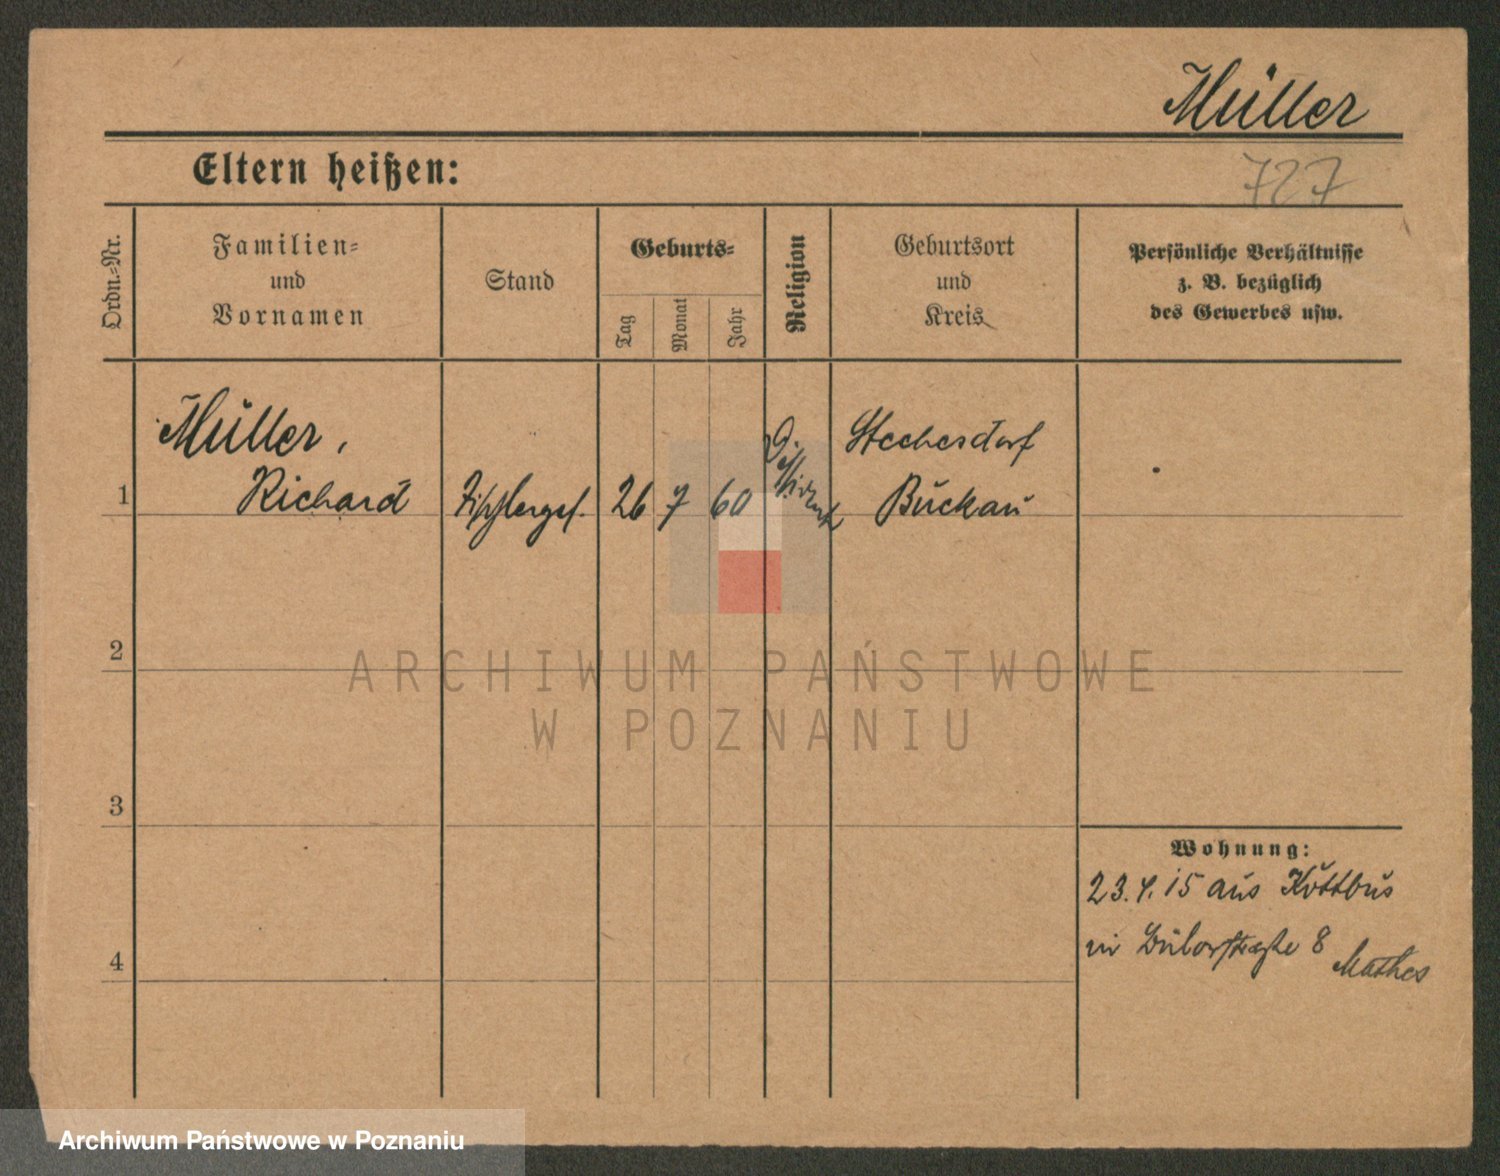 Müller
Eltern heißen:
727
Ordn.-Nr.
Familien-
und
Vornamen
Stand
Geburts-
Tag
Monat
Jahr
Religion
Geburtsort
und
Kreis
Persönliche Verhältnisse
z. B. bezüglich
des Gewerbes usw.
1
Müller,
Richard
Tischlerges.
26
7
60
Dissident
Stechesdorf
Buckau
2
ARCHIWUM PAŃSTWOWE
W POZNANIU
3
Wohnung:
23.4.15 aus Kottbus
in 8
Mathes
4
Archiwum Państwowe w Poznaniu